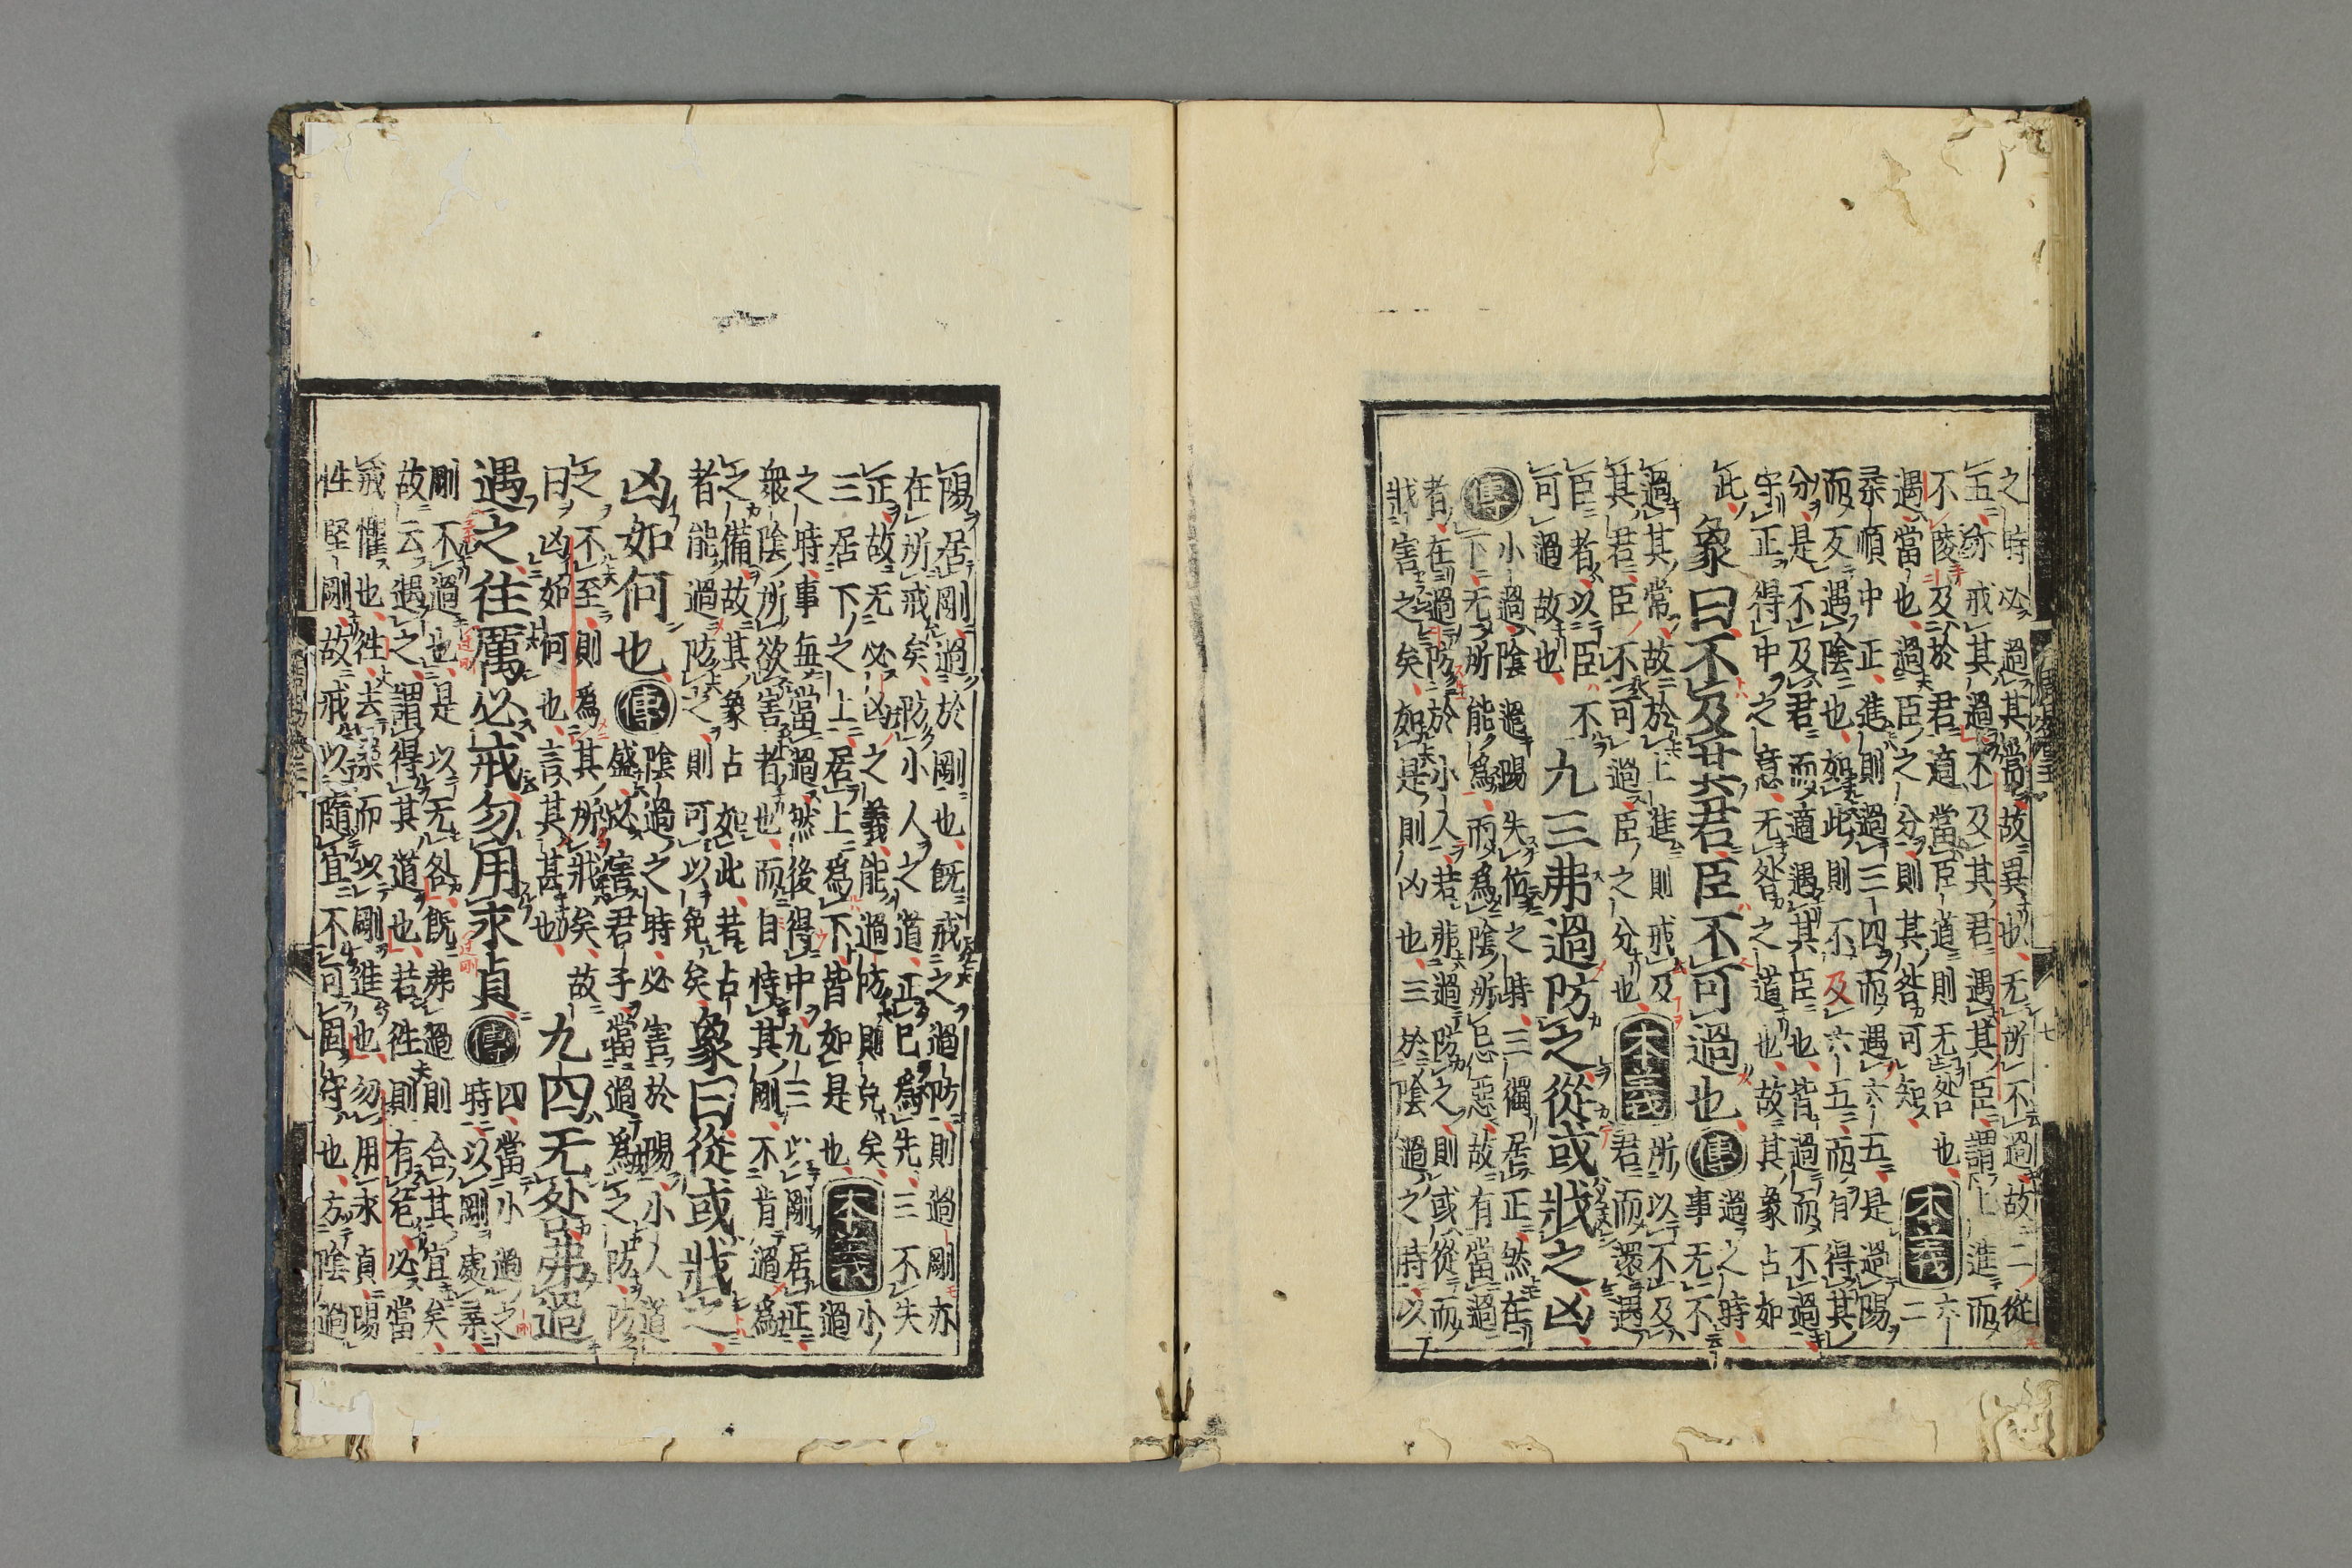 之時必過其當故異也无所不過故二從
五亦戒其過不及其君遇其臣謂上進而
不陵及於君適當臣道則无咎也
遇當也過臣之分則其咎可知
本義
六
二
柔順中正進則過三四而遇六五是過陽
而反遇陰也如此則不及六五而自得其
分是不及君而適遇其臣也皆過而不過
守正得中之意无咎之道也故其象占如
此
象曰不及其君臣不可過也
傳
過之時
事无不
過其常故於上進則戒及
其君臣不可過臣之分也
本義
所以不及
君而還遇
臣者以臣不
可過故也
九三弗過防之從或戕之凶
傳
小過陰過陽失位之時三獨居正然在
下无所能為而為陰所忌惡故有當過
者在過防於小人若弗過防之則或從而
戕害之矣如是則凶也三於陰過之時以
陽居剛過於剛也既戒之過防則過剛亦
在所戒矣防小人之道正己為先三不失
正故无必凶之義能過防則免矣
三居下之上居上為下皆如是也
本義
小
過
之時事每當過然後得中九三以剛居正
衆陰所欲害者也而自恃其剛不肯過為
之備故其象占如此若占
者能過防之則可以免矣
象曰從或戕之
凶如何也
傳
陰過之時必害於陽小人道
盛必害君子當過為之防防
之不至則為其所戕矣故
曰凶如何也言其甚也
九四无咎弗過
遇之往厲必戒勿用永貞
傳
四當小過之
時以剛處柔
剛不過也是以无咎既弗過則合其宜矣
故云遇之謂得其道也若往則有危必當
戒懼也往去柔而以剛進也勿用永貞陽
性堅剛故戒以隨宜不可固守也方陰過